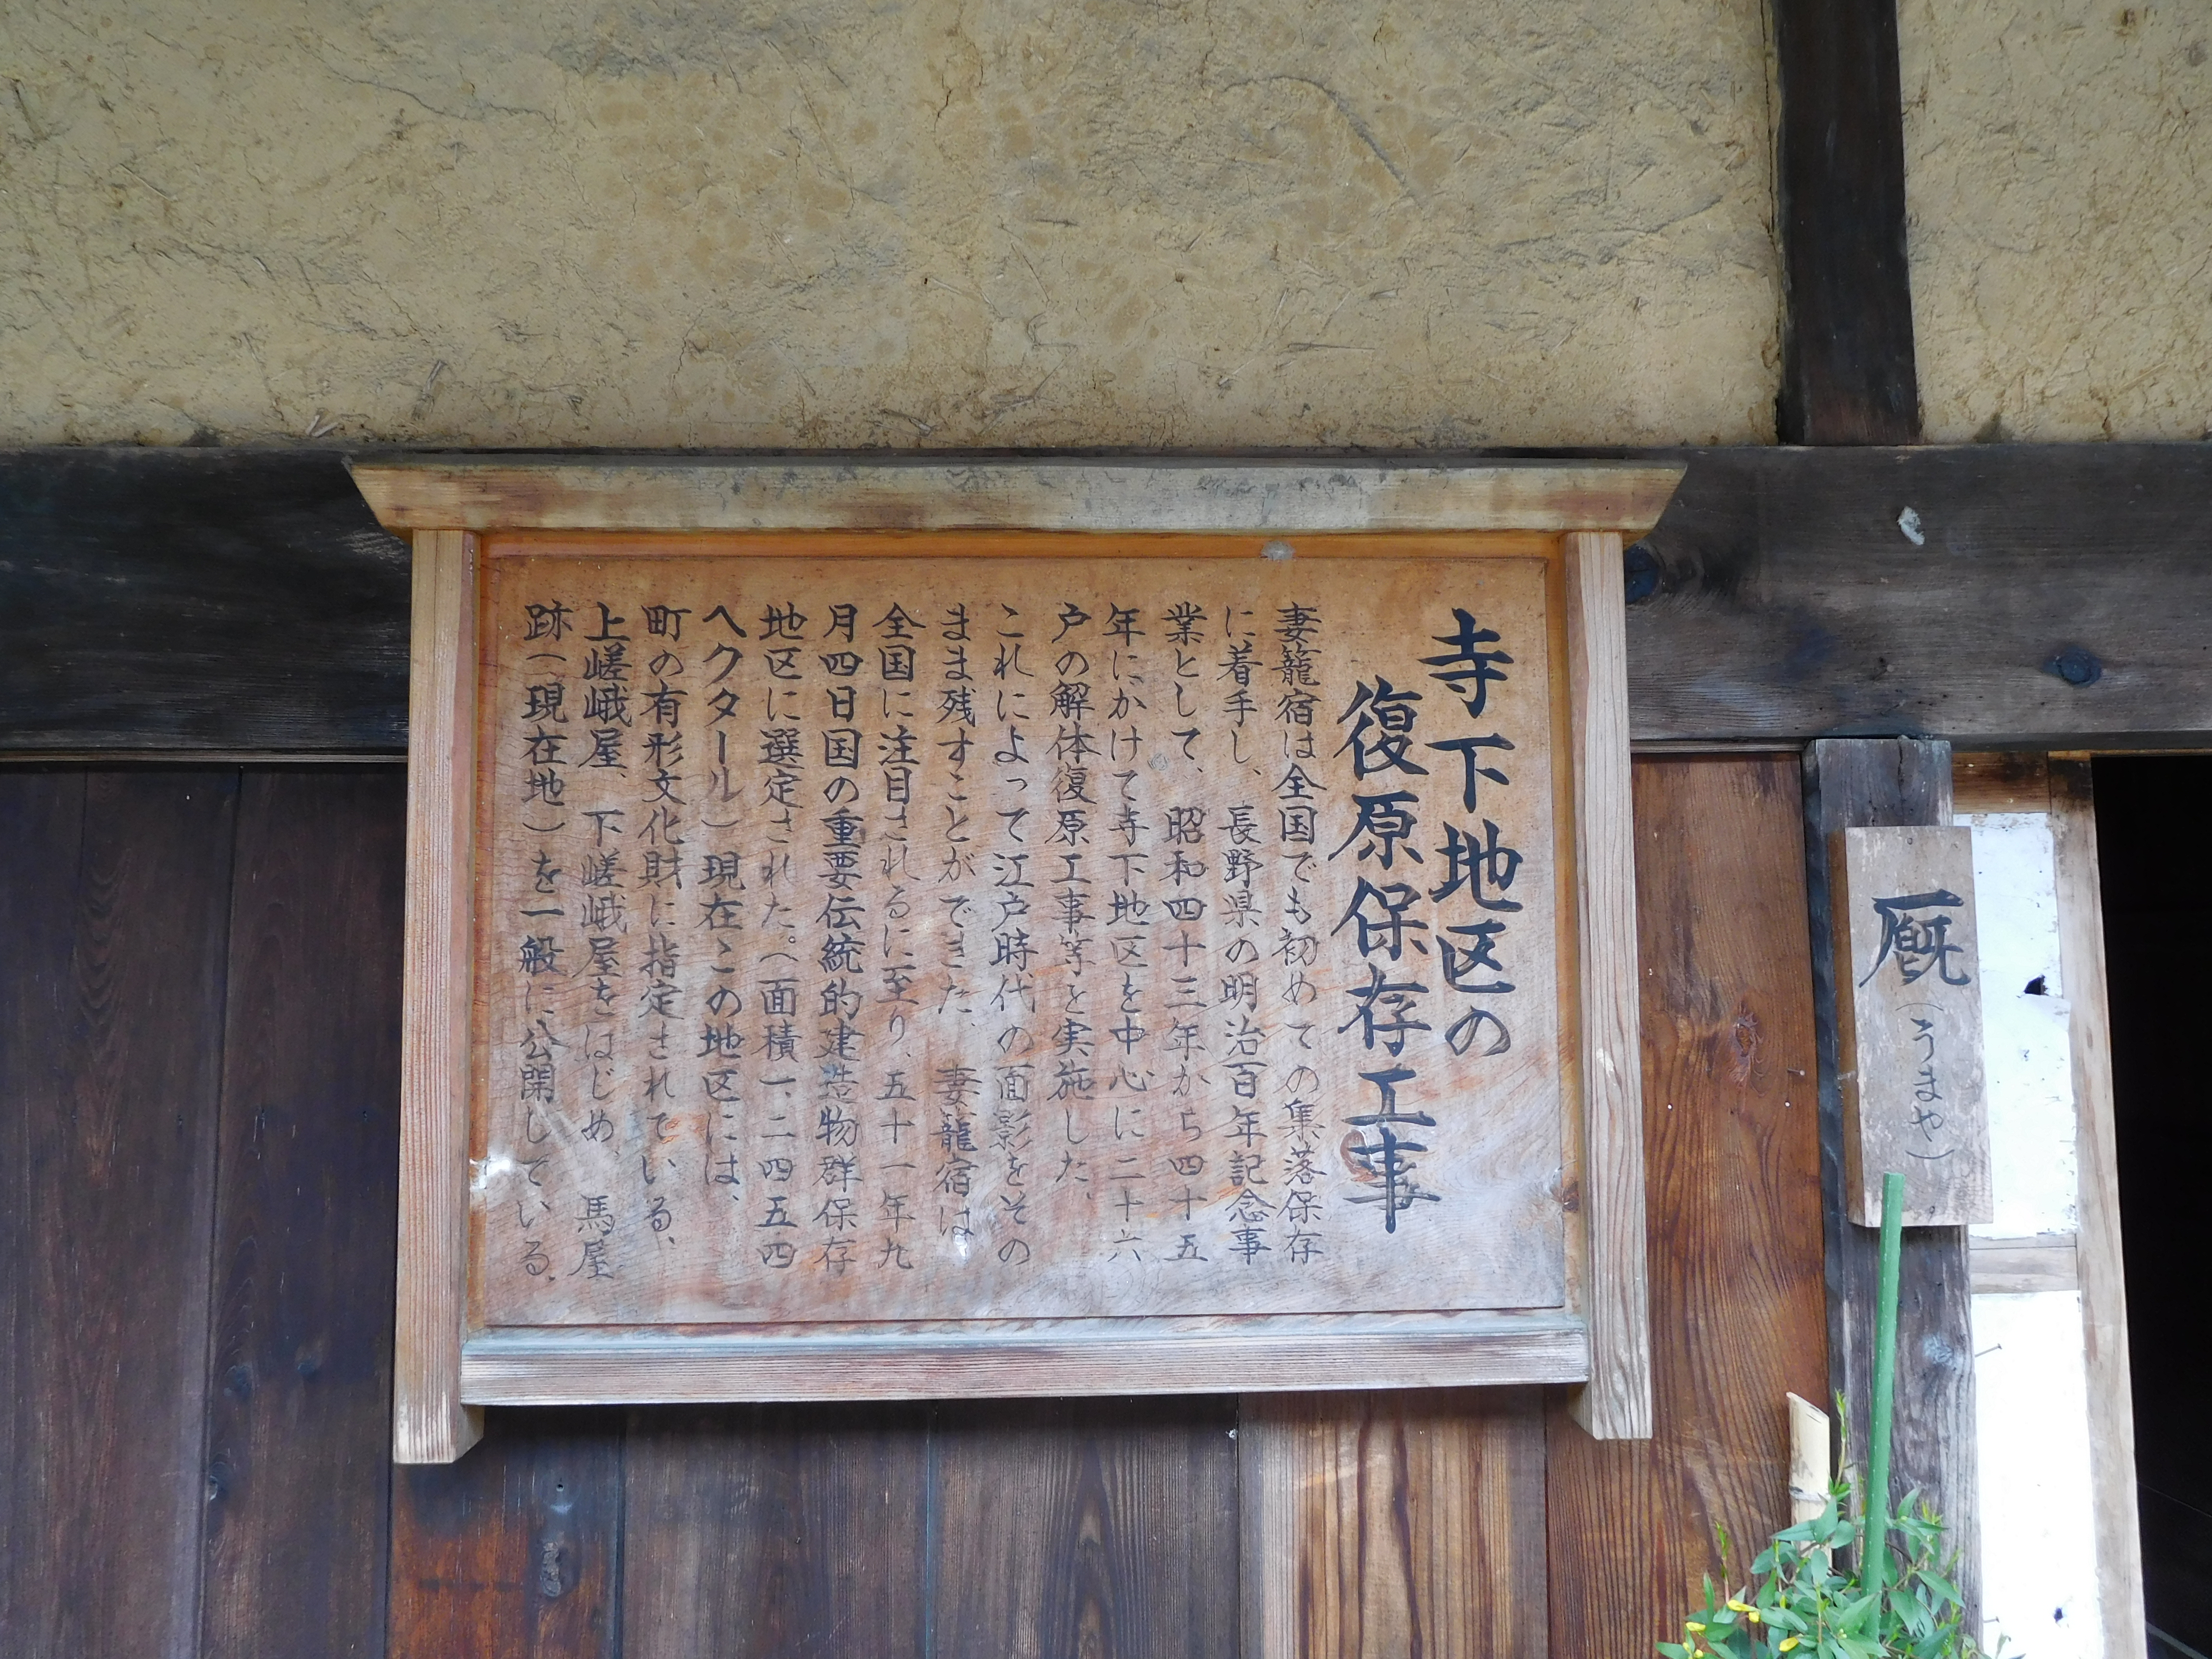 寺下地区の
復原保存工事
妻籠宿は全国でも初めての集落保存
に着手し、長野県の明治百年記念事
業として、昭和四十三年から四十五
年にかけて寺下地区を中心に二十六
戸の解体復原工事等を実施した、
これによって江戸時代の面影をその
まま残すことができた、妻籠宿は
全国に注目されるに至り、五十一年九
月四日国の重要伝統的建造物群保存
地区に選定された。(面積一、二四五四
ヘクタール)現在この地区には、
町の有形文化財に指定されている、
上嵯峨屋、下嵯峨屋をはじめ、馬屋
跡(現在地)を一般に公開している、
厩(うまや)